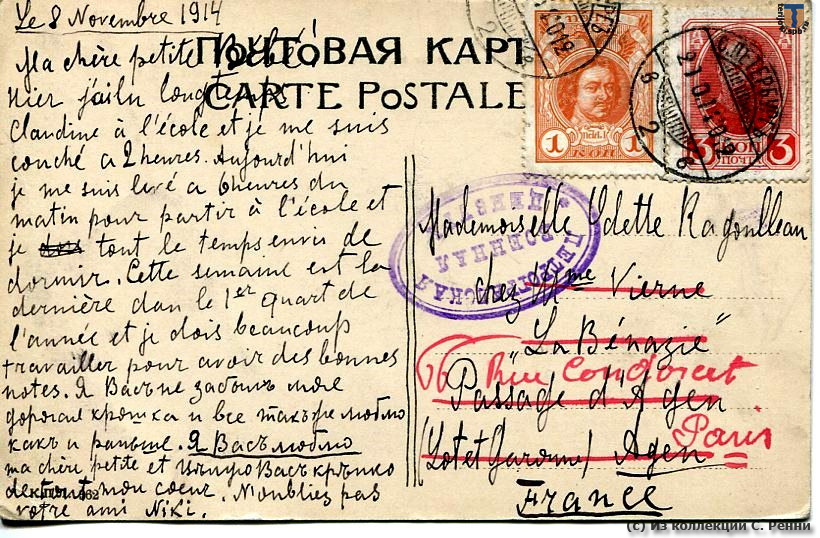 Le 8 Novembre 1914
ПОЧТОВАЯ КАРТ
CARTE POSTALE
Ma chère petite Bébé!
Hier j'ai lu longtemps
Claudine à l'école et je me suis
couché a 2 heures. Aujourd'hui
je me suis levé a 6 heures du
matin pour partir à l'école et
je tout le temps envis de
dormir. Cette semaine est la
dernière dan le 1er quart de
l'année et je dois beaucoup
travailler pour avoir des bonnes
notes. Я Васъ не забылъ моя
дорогая крошка и все такъ же люблю
какъ и раньше. Я Васъ люблю
ma chère petite et цѣлую Васъ крѣпко
de tout mon coeur. N'oubliez pas
votre ami Niki.
1 1
КОП
3 КОП 3
ПОЧТА
С.ПЕТЕРБУРГЪ
ПЕТРОГРАДСКАЯ
ВОЕННАЯ
ЦЕНЗУРА
Mademoiselle Odette Ragoulleau
chez Mme Vierne
"La Bénazie"
66 Rue Condorcet
Passage d'Agen
Paris
(Lot et Garonne) Agen
France
(c) Из коллекции С. Ренни